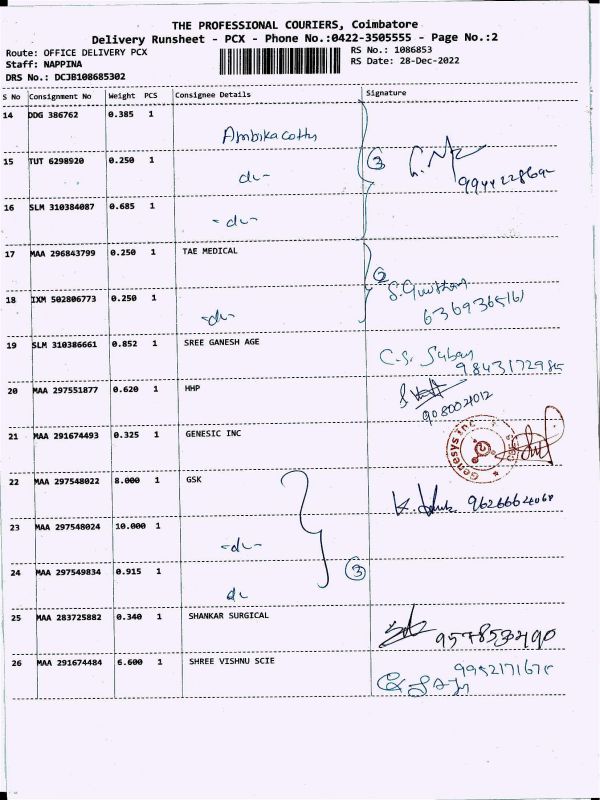 THE PROFESSIONAL COURIERS, Coimbatore
Delivery Runsheet - PCX - Phone No.:0422-3505555 - Page No.:2
Route: OFFICE DELIVERY PCX
RS No.: 1086853
Staff: NAPPINA
RS Date: 28-Dec-2022
DRS No.: DCJB108685302
S No Consignment No Weight PCS Consignee Details Signature
14 DDG 386762 0.385 1
Ambika cotty
15 TUT 6298920 0.250 1 3
-do-
16 SLM 310384087 0.685 1
-do-
17 MAA 296843799 0.250 1 TAE MEDICAL
2
18 IXM 502806773 0.250 1
-do-
6369365161
19 SLM 310386661 0.852 1 SREE GANESH AGE
9843172985
20 MAA 297551877 0.620 1 HHP
9080021012
21 MAA 291674493 0.325 1 GENESIC INC
Genesys Inc
22 MAA 297548022 8.000 1 GSK
9626664068
23 MAA 297548024 10.000 1
-do-
24 MAA 297549834 0.915 1 3
do
25 MAA 283725882 0.340 1 SHANKAR SURGICAL
26 MAA 291674484 6.600 1 SHREE VISHNU SCIE